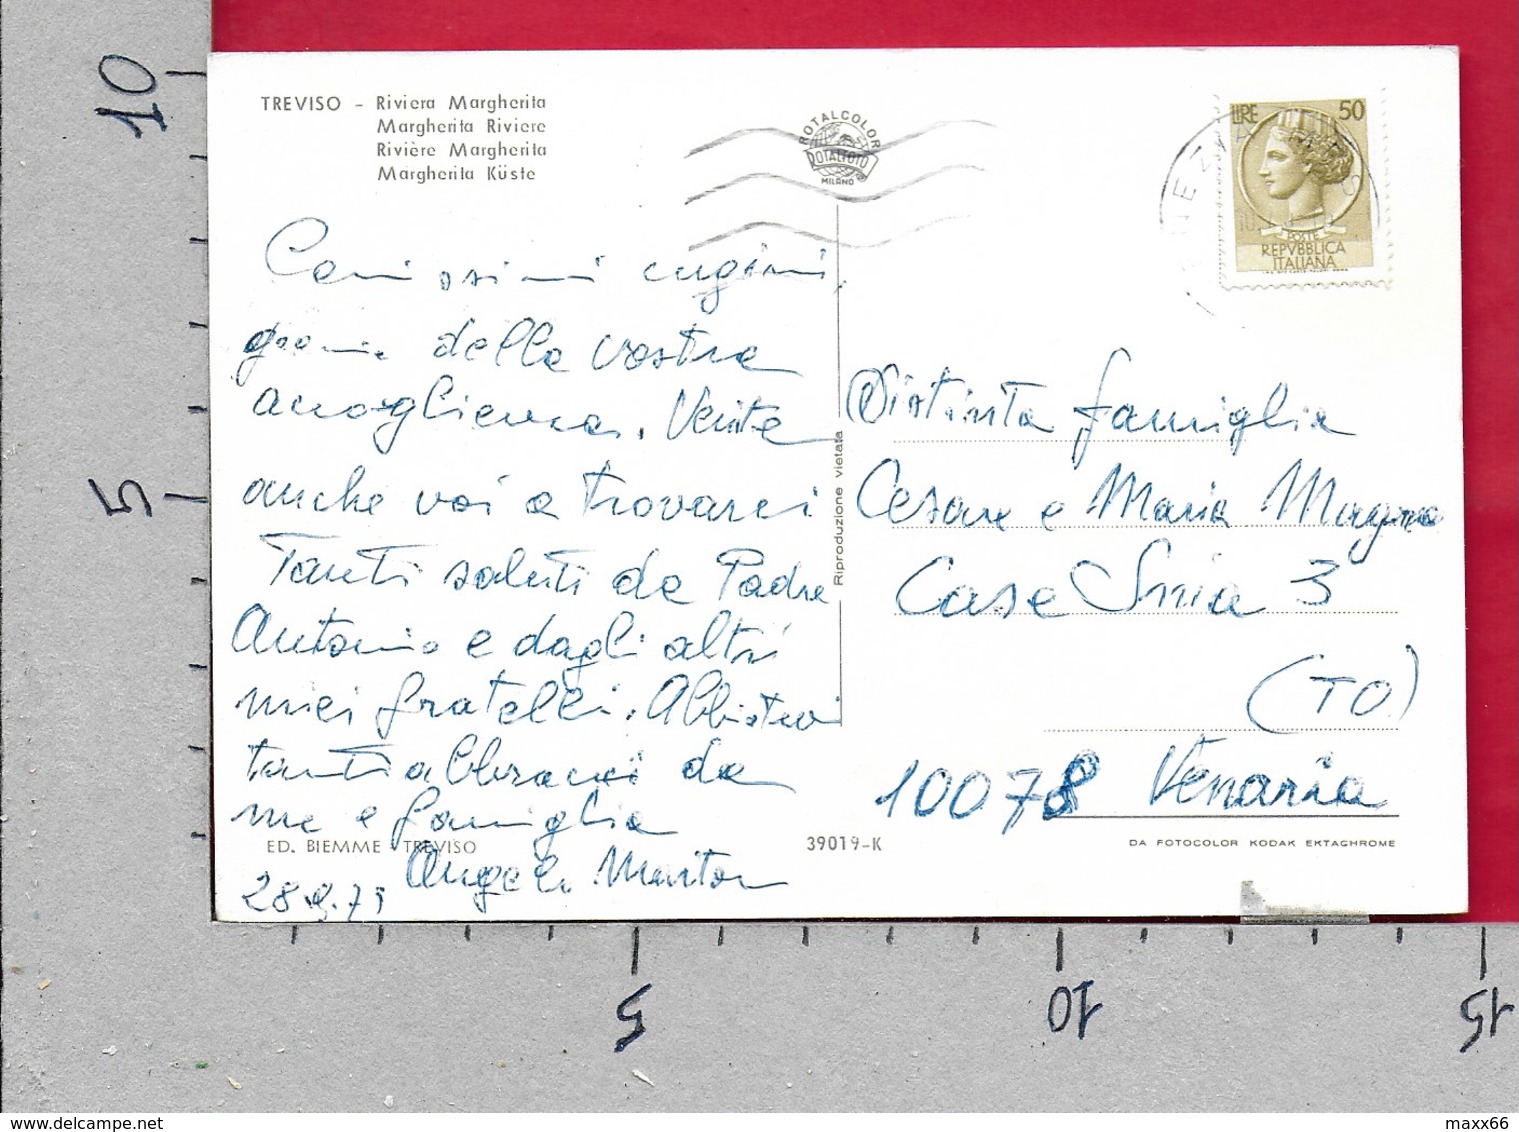 10
5
TREVISO - Riviera Margherita
Margherita Riviere
Rivière Margherita
Margherita Küste
ROTALCOLOR
ROTALFOTO
MILANO
VENEZIA
LIRE 50
POSTE
REPVBBLICA
ITALIANA
Carissimi cugini,
grazie della vostra
accoglienza. Venite
anche voi a trovarci
Tanti saluti da Padre
Antonio e dagli altri
miei fratelli. Abbiatevi
tanti abbracci da
me e famiglia
ED. BIEMME TREVISO
Angelo Marton
28.9.73
Riproduzione vietata
Distinta famiglia
Cesare e Maria Magro
Case Snia 3
(TO)
10078 Venaria
39019-K
DA FOTOCOLOR KODAK EKTACHROME
5
10
15
maxx66